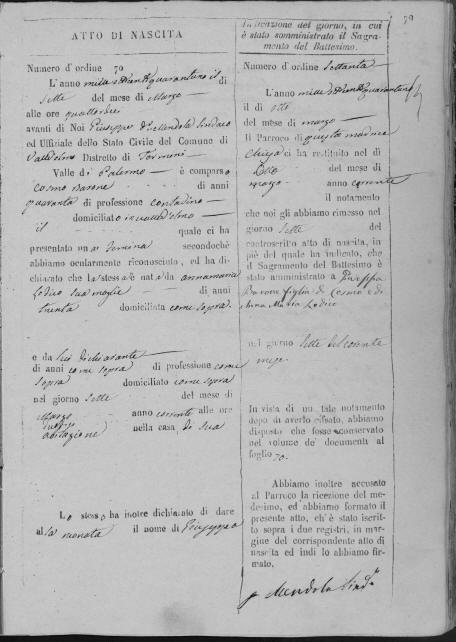 70
ATTO DI NASCITA
Numero d'ordine 70
L'anno mille ottocento quarantuno il dì
Sette del mese di Marzo
alle ore quattordici
avanti di Noi Giuseppe Mendola Sindaco
ed Uffiziale dello Stato Civile del Comune di
Valledolmo Distretto di Termini
Valle di Palermo è comparso
Cosmo Barone di anni
quaranta di professione contadino
domiciliato in Valledolmo
il quale ci ha
presentato una femina secondochè
abbiamo ocularmente riconosciuto, ed ha di-
chiarato che la stessa è nata da Annamaria
Lodico sua moglie di anni
trenta domiciliata come sopra
e da lui dichiarante
di anni come sopra di professione come
sopra domiciliato come sopra
nel giorno sette del mese di
Marzo anno corrente alle ore
nella casa di sua
abitazione
Lo stesso ha inoltre dichiarato di dare
alla neonata il nome di Giuseppa
Indicazione del giorno, in cui
è stato somministrato il Sagra-
mento del Battesimo.
Numero d'ordine settanta
L'anno mille ottocento quarantuno
il dì
del mese di marzo
Il Parroco di questa madrice
chiesa ci ha restituito nel dì
del mese di
marzo anno corrente
il notamento
che noi gli abbiamo rimesso nel
giorno sette del
controscritto atto di nascita, in
piè del quale ha indicato, che
il Sagramento del Battesimo è
stato amministrato a Giuseppa
Barone figlia di Cosmo e di
Anna Maria Lodico
nel giorno sette del corrente
mese.
In vista di un tale notamento
dopo di averlo cifrato, abbiamo
disposto che fosse conservato
nel volume de' documenti al
foglio 70.
Abbiamo inoltre accusato
al Parroco la ricezione del me-
desimo, ed abbiamo formato il
presente atto, ch'è stato iscrit-
to sopra i due registri, in mar-
gine del corrispondente atto di
nascita ed indi lo abbiamo fir-
mato.
Mendola Sind.o